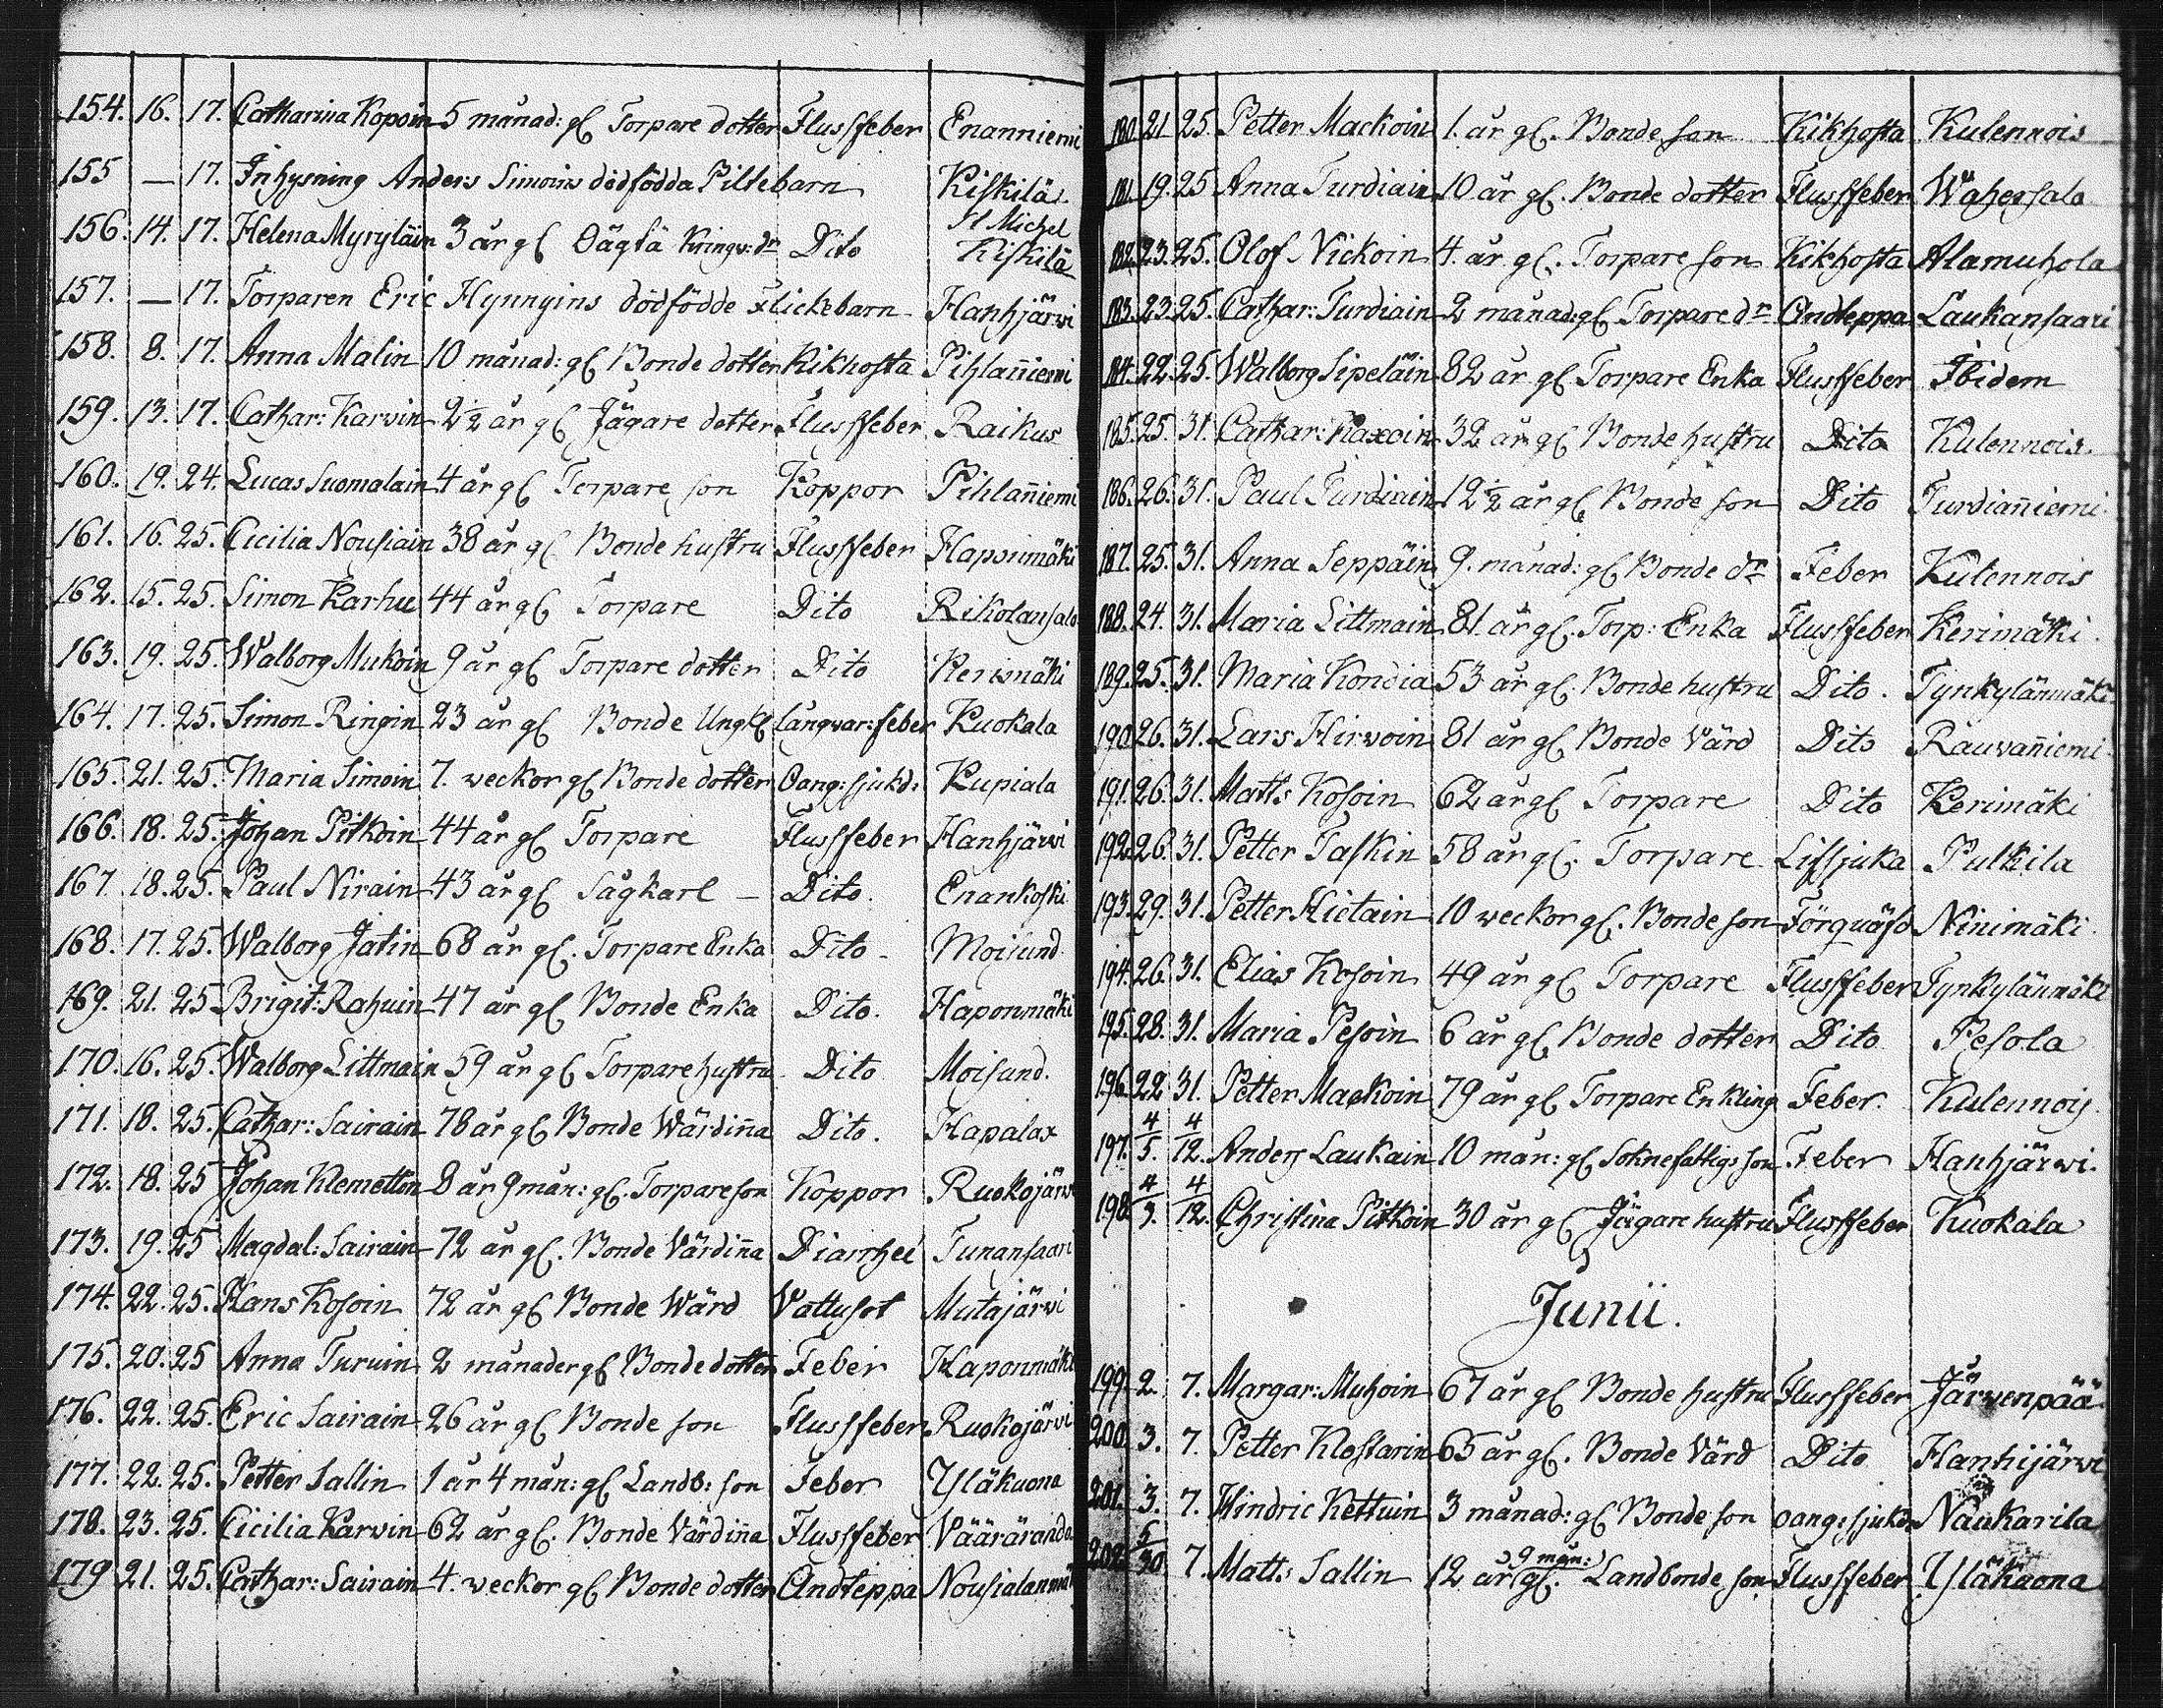 154. 16. 17. Catharina Kopoin 5 månad: gl Torpare dotter Flussfeber Enanniemi
155 — 17. Inhysning Anders Simoins dödfödda Piltebarn Kiskilä
156. 14. 17. Helena Myryläin 3 år gl Kringv: dr Dito St Michel Kiskilä
157. — 17. Torparen Eric Hynnyins dödfödde Flickebarn Hanhjärvi
158. 8. 17. Anna Malin 10 månad: gl Bonde dotter Kikhosta Pihlan̄iemi
159. 13. 17. Cathar: Karvin 2½ år gl Jägare dotter Flussfeber Raikus
160. 19. 24. Lucas Suomalain 4 år gl Torpare son Koppor Pihlan̄iemi
161. 16. 25. Cicilia Nousiain 38 år gl Bonde hustru Flussfeber Haponmäki
162. 15. 25. Simon Karhu 44 år gl Torpare Dito Rikolansalo
163. 19. 25. Walborg Mukoin 9 år gl Torpare dotter Dito Kerimäki
164. 17. 25. Simon Ringin 23 år gl Bonde Ungkl Långvar: feber Kuokala
165. 21. 25. Maria Simoin 7. weckor gl Bonde dotter Oang: sjukd: Kupiala
166. 18. 25. Johan Pitkoin 44 år gl Torpare Flussfeber Hanhjärvi
167. 18. 25. Paul Nirain 43 år gl Sågkarl — Dito. Enankoski
168. 17. 25. Walborg Jatin 68 år gl. Torpare Enka Dito - Moisund
169. 21. 25 Brigit: Rahuin 47 år gl Bonde Enka Dito. Haponmäki
170. 16. 25. Walborg Littmain 59 år gl Torpare hustru Dito Moisund.
171. 18. 25. Cathar: Sairain 78 år gl Bonde Wärdin̄a Dito. Hapalax
172. 18. 25 Johan Klemettin 8 år 9 mån: gl. Torpare son Koppor Ruokojärvi
173. 19. 25 Magdal: Sairain 72 år gl. Bonde Värdin̄a Diarrhei Tunansaari
174. 22. 25. Hans Kosoin 72 år gl Bonde Wärd Vattusot Mutajärvi
175. 20. 25 Anna Turuin 2 månader gl Bonde dotter Feber Haponmäki
176. 22. 25. Eric Sairain 26 år gl Bonde son Flussfeber Ruokojärvi
177. 22. 25. Petter Sallin 1 år 4 mån: gl Landb: son Feber Yläkuona
178. 23. 25. Cicilia Karvin 62 år gl. Bonde Värdin̄a Flussfeber Vääräranda
179 21. 25. Cathar: Sairain 4. weckor gl Bonde dotter Andteppa Nousialanmäki
180. 21 25. Petter Mackoin 1. år gl. Bonde son Kikhosta Kulennois
181. 19. 25 Anna Turdiain 10 år gl. Bonde dotter Flussfeber Wahersalo
182. 23. 25. Olof Nickoin 4. år gl. Torpare son Kikhosta Alamuhola
183. 23. 25. Cathar: Turdiain 2 månad: gl Torpare dr Andteppa Laukansaari
184. 22. 25. Walborg Sipeläin 82 år gl Torpare Enka Flussfeber Ibidem
185. 25. 31. Cathar: Raxoin 32 år gl Bonde hustru Dito Kulennois.
186. 26. 31. Paul Turdiain 12½ år gl Bonde son Dito Turdian̄iemi.
187. 25. 31. Anna Seppäin 9. månad: gl Bonde dr Feber Kulennois
188. 24. 31. Maria Littmain 81. år gl. Torp: Enka Flussfeber Kerimäki.
189. 25. 31. Maria Kondia 53 år gl. Bonde hustru Dito. Tynkylänmäki
190. 26. 31. Lars Hirvoin 81 år gl Bonde Värd Dito Rauvan̄iemi.
191. 26. 31. Matts Kosoin 62 år gl Torpare Dito Kerimäki
192. 26. 31. Petter Taskin 58 år gl. Torpare Lifsjuka Pulkila
193. 29. 31. Petter Hietain 10 weckor gl. Bonde son Förquäfd Ninimäki.
194. 26. 31. Elias Kosoin 49 år gl Torpare Flussfeber Tynkylänmäki
195. 28. 31. Maria Pesoin 6 år gl Bonde dotter Dito Pesola
196. 22 31. Petter Mackoin 79 år gl Torpare Enkling Feber. Kulennois.
197. 4/5. 4/12. Anders Laukain 10 mån: gl Soknefattigs son Feber Hanhjärwi.
198. 4/3. 4/12. Christina Pitkoin 30 år gl Jägare hustru Flussfeber Kuokala
Junii.
199. 2. 7. Margar: Muhoin 67 år gl Bonde hustru Flussfeber Järvenpää
200. 3. 7. Petter Klostarin 65 år gl. Bonde Värd Dito Hanhijärvi
201. 3. 7. Hindric Kettuin 3 månad: gl Bonde son oang: sjukd: Naukarila
202. 5/30. 7. Matts Sallin 12 år 9 mån: gl. Landbonde son Flussfeber Yläkuona